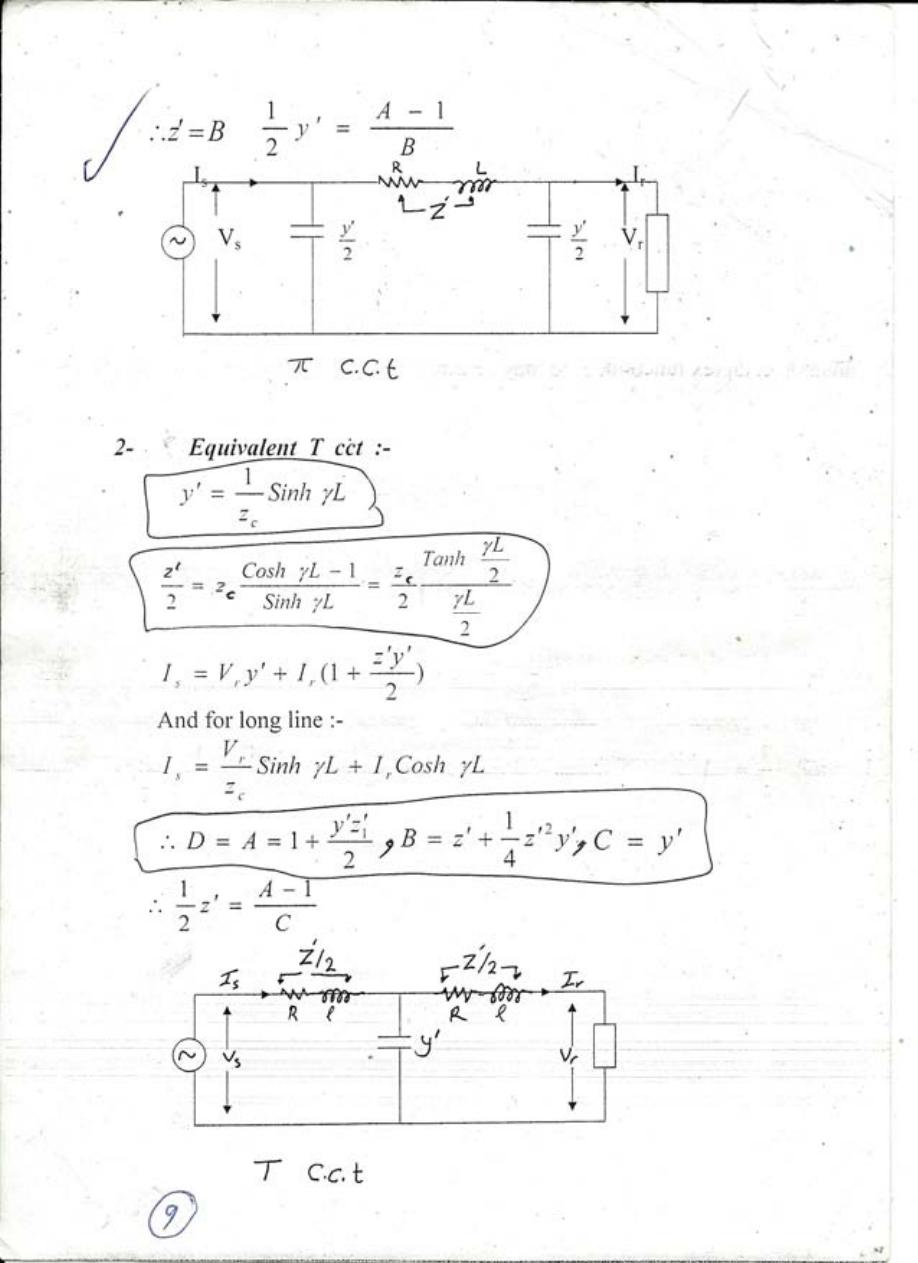 ∴z' = B   1/2 y' = (A - 1)/B
I_s   R   L   I_r
Z'
V_s   y'/2   y'/2   V_r
~
π C.C.t
2- Equivalent T cct :-
y' = 1/z_c Sinh γL
z'/2 = z_c (Cosh γL - 1)/(Sinh γL) = z_c/2 (Tanh γL/2)/(γL/2)
I_s = V_r y' + I_r(1 + z'y'/2)
And for long line :-
I_s = V_r/z_c Sinh γL + I_r Cosh γL
∴ D = A = 1 + y'z'_1/2 , B = z' + 1/4 z'^2 y', C = y'
∴ 1/2 z' = (A - 1)/C
Z'/2   Z'/2
I_s   I_r
R   l   R   l
~   V_s   y'   V_r
T C.c.t
9